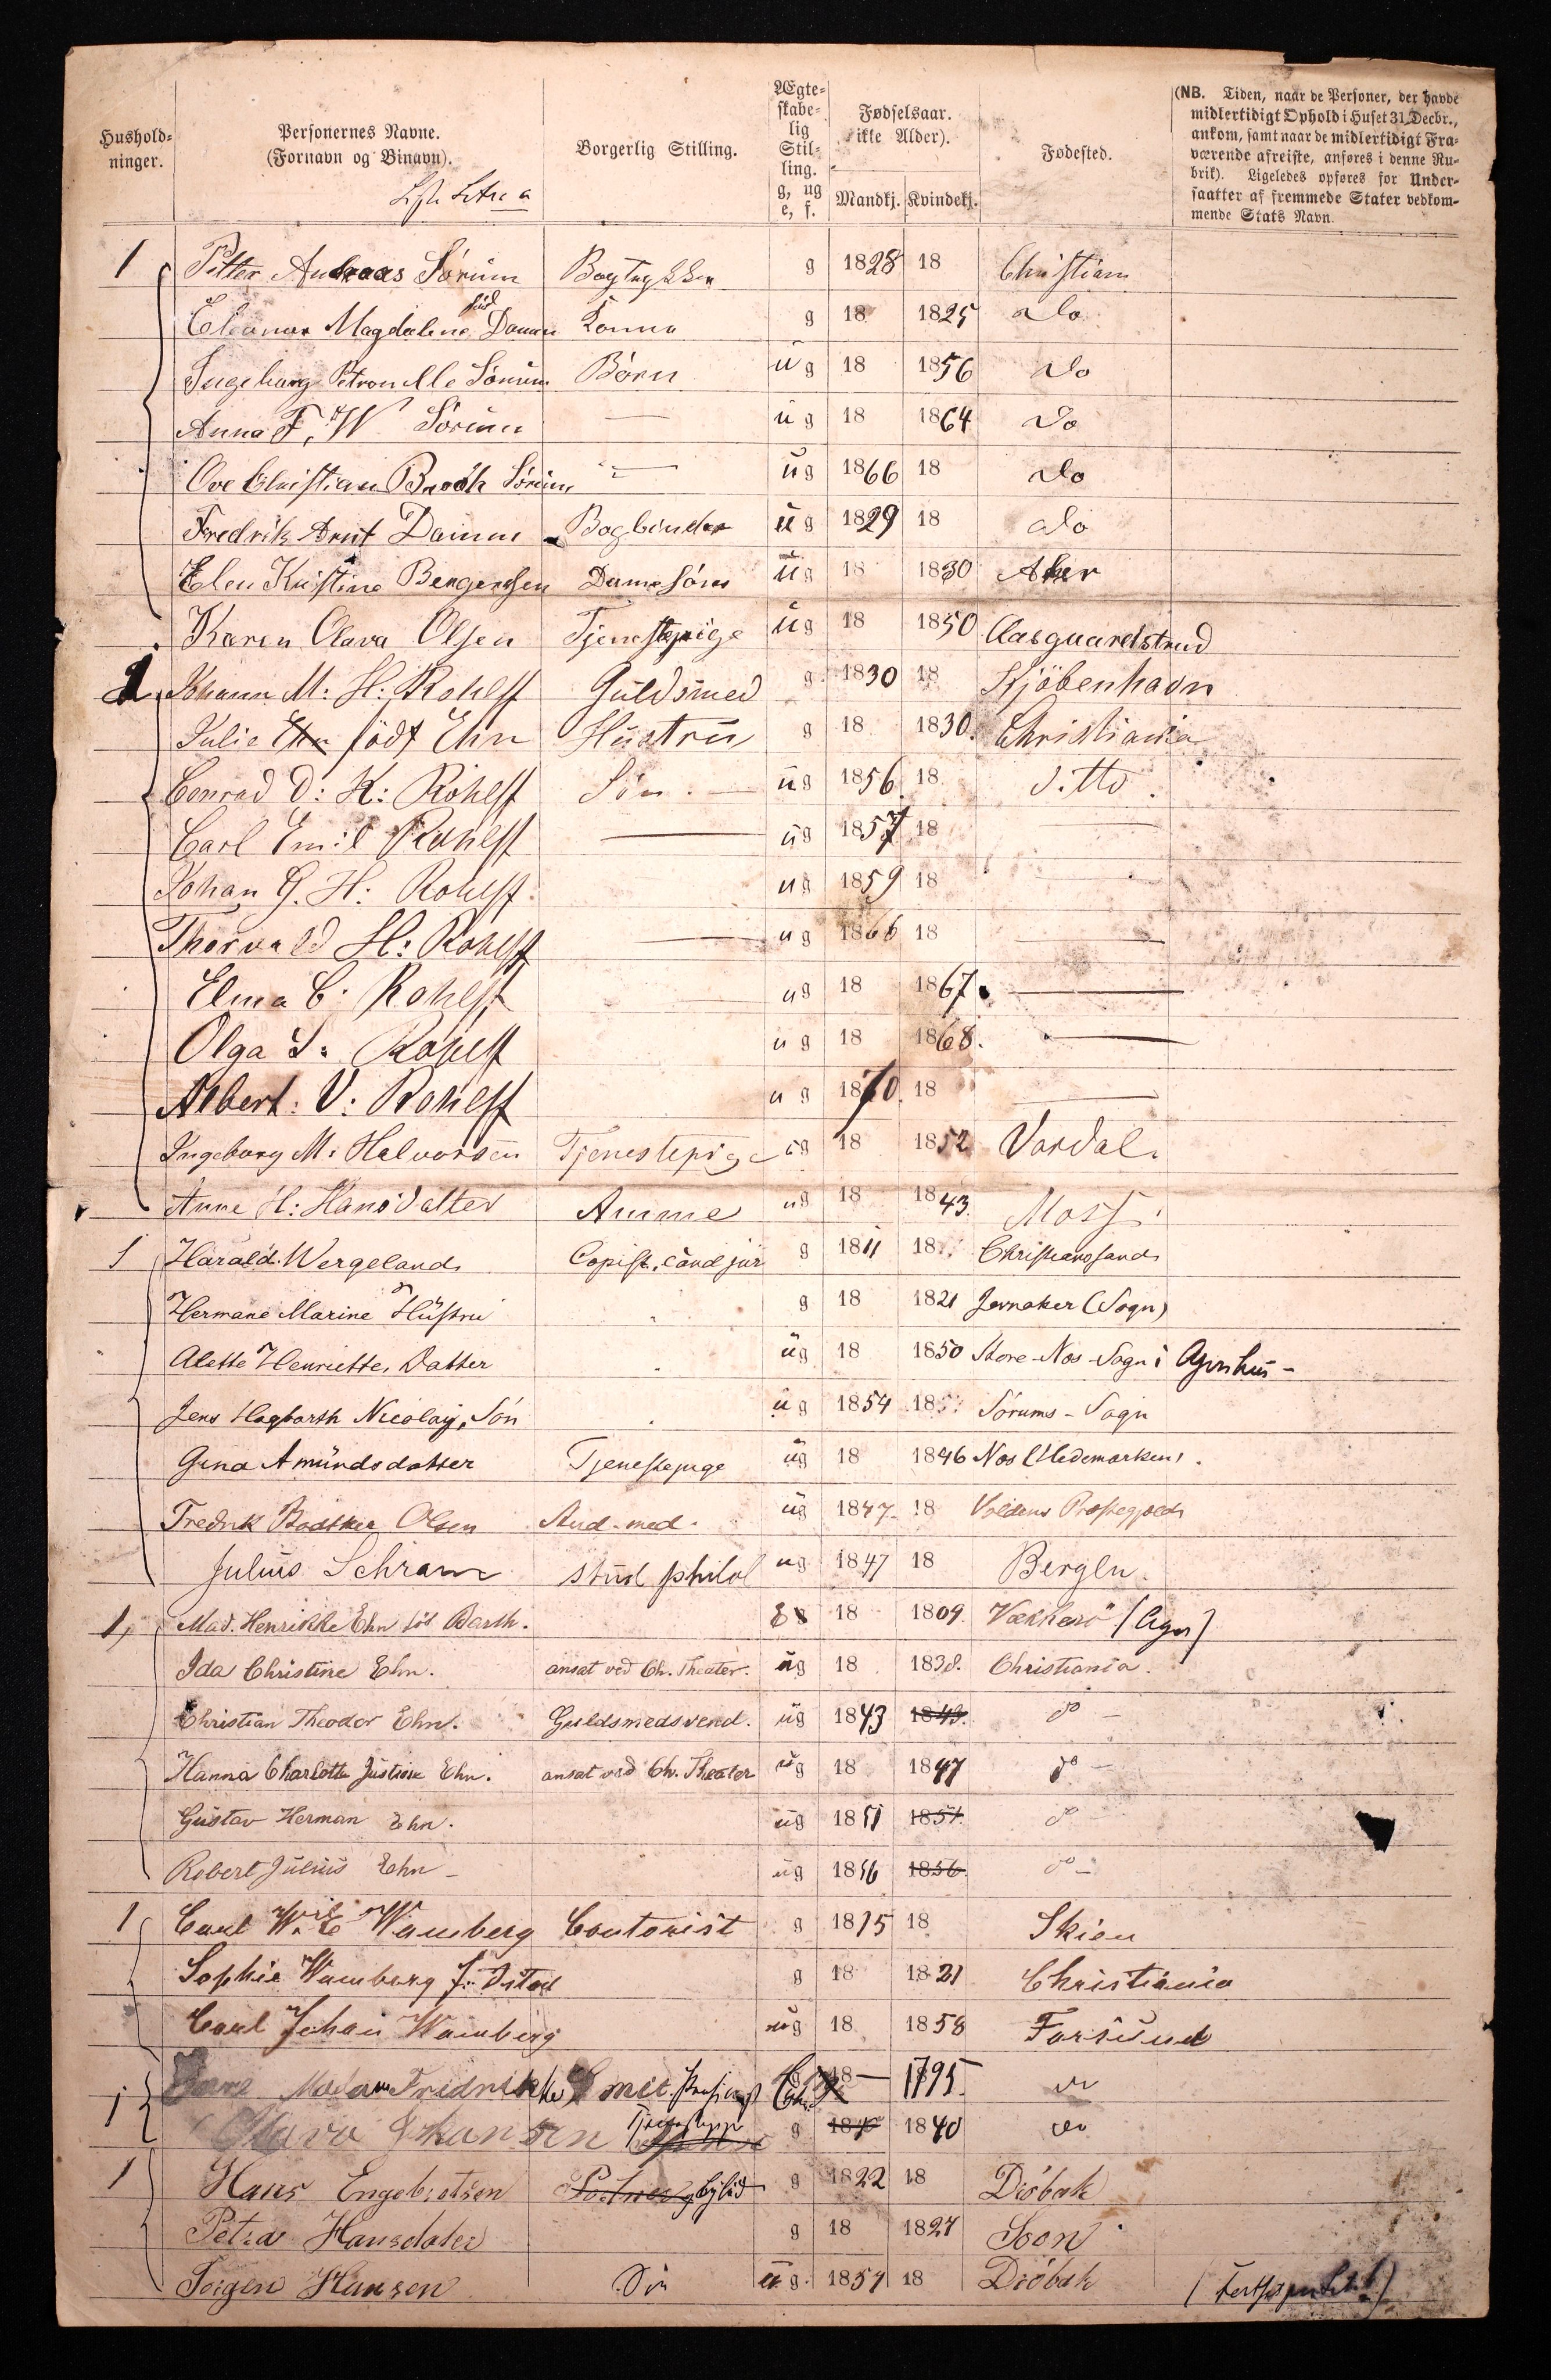 Hushold-
ninger.
Personernes Navne.
(Fornavn og Binavn).
Borgerlig Stilling.
Ægte-
skabe-
lig
Stil-
ling.
g, ug
e, f.
Fødselsaar.
ikke Alder).
Mandkj. Kvindekj.
Fødested.
(NB. Tiden, naar de Personer, der havde
midlertidigt Ophold i Huset 31 Decbr.,
ankom, samt naar de midlertidigt Fra-
værende afreiste, anføres i denne Ru-
brik). Ligeledes opføres for Under-
saatter af fremmede Stater vedkom-
mende Stats Navn.
1 Petter Andreas Sørum Bogtrykker g 1828 18 Christiania
Eleonora Magdalena född Damm Konna g 18 1825 Do
Ingeborg Petronelle Sørum Børn ug 18 1856 Do
Anna F, W Sørum — ug 18 1864 Do
Ove Christian Broch Sørum — ug 1866 18 Do
Fredrik Arnt Damm Bogbinder ug 1829 18 Do
Elen Kristine Bengersen Damesöm ug 18 1830 Aker
Karen Olava Olsen Tjenestepige ug 18 1850 Aasguardstrand
1 Johann M: H: Rohlff Guldsmed g 1830 18 Kjöbenhavn
Julie Ehn födt Ehn Hustru g 18 1830. Christiania
Conrad D: K: Rohlff Sön. — ug 1856 18 Ditto.
Carl Emil Rohlff — ug 1857 18 —
Johan G. H: Rohlff ug 1859 18 —
Thorvald H: Rohlff — ug 1866 18 —
Elma C: Rohlff ug 18 1867. —
Olga S: Rohlff ug 18 1868. —
Albert: V: Rohlff ug 1870. 18 —
Ingeborg M: Halvorsen Tjenestepige ug 18 1852 Vardal.
Anne H: Hansdatter Amme ug 18 1843. Moss
1 Harald Wergeland Copist, cand jur g 1811 18 Christianssand
Hermane Marine Hustru g 18 1821 Jevnaker (Sogn)
Alette Henriette, Datter ug 18 1850 Store-Nes-Sogn i Agershus-
Jens Hagbarth Nicolay, Sön ug 1854 18 Sørums-Sogn
Gina Amundsdatter Tjenestepige ug 18 1846 Nes (Hedemarken).
Fredrik Bødtker Olsen Stud. med. ug 1847 18 Voldens Prestegjeld
Julius Schram stud philol ug 1847 18 Bergen.
1, Mad. Henrikke Ehn föd Barth. E 18 1809. Vækkerö (Ager)
Ida Christine Ehn. ansat ved Ch. Theater. ug 18 1838. Christiania.
Christian Theodor Ehn. Guldsmedsvend. ug 1843 1843. do —
Hanna Charlotte Justine Ehn. ansat ved Ch. Theater ug 18 1847 do —
Gustav Herman Ehn. ug 1851 1851. do —
Robert Julius Ehn — ug 1856 1856. do —
1 Carl Wil Wamberg Contorist g 1815 18 Skien
Sophie Wamberg g 18 1821 Christiania
Carl Johan Wamberg ug 18 1858 Farsund
1 Madam Fridrikke 18 — 1795. do
Olava Johansen Tjenestepige g 18 1840 do
1 Hans Engebretsen g 1822 18 Dröbak
Petra Hansdater g 18 1827 Soon
Jørgen Hansen Sön ug. 1857 18 Dröbak